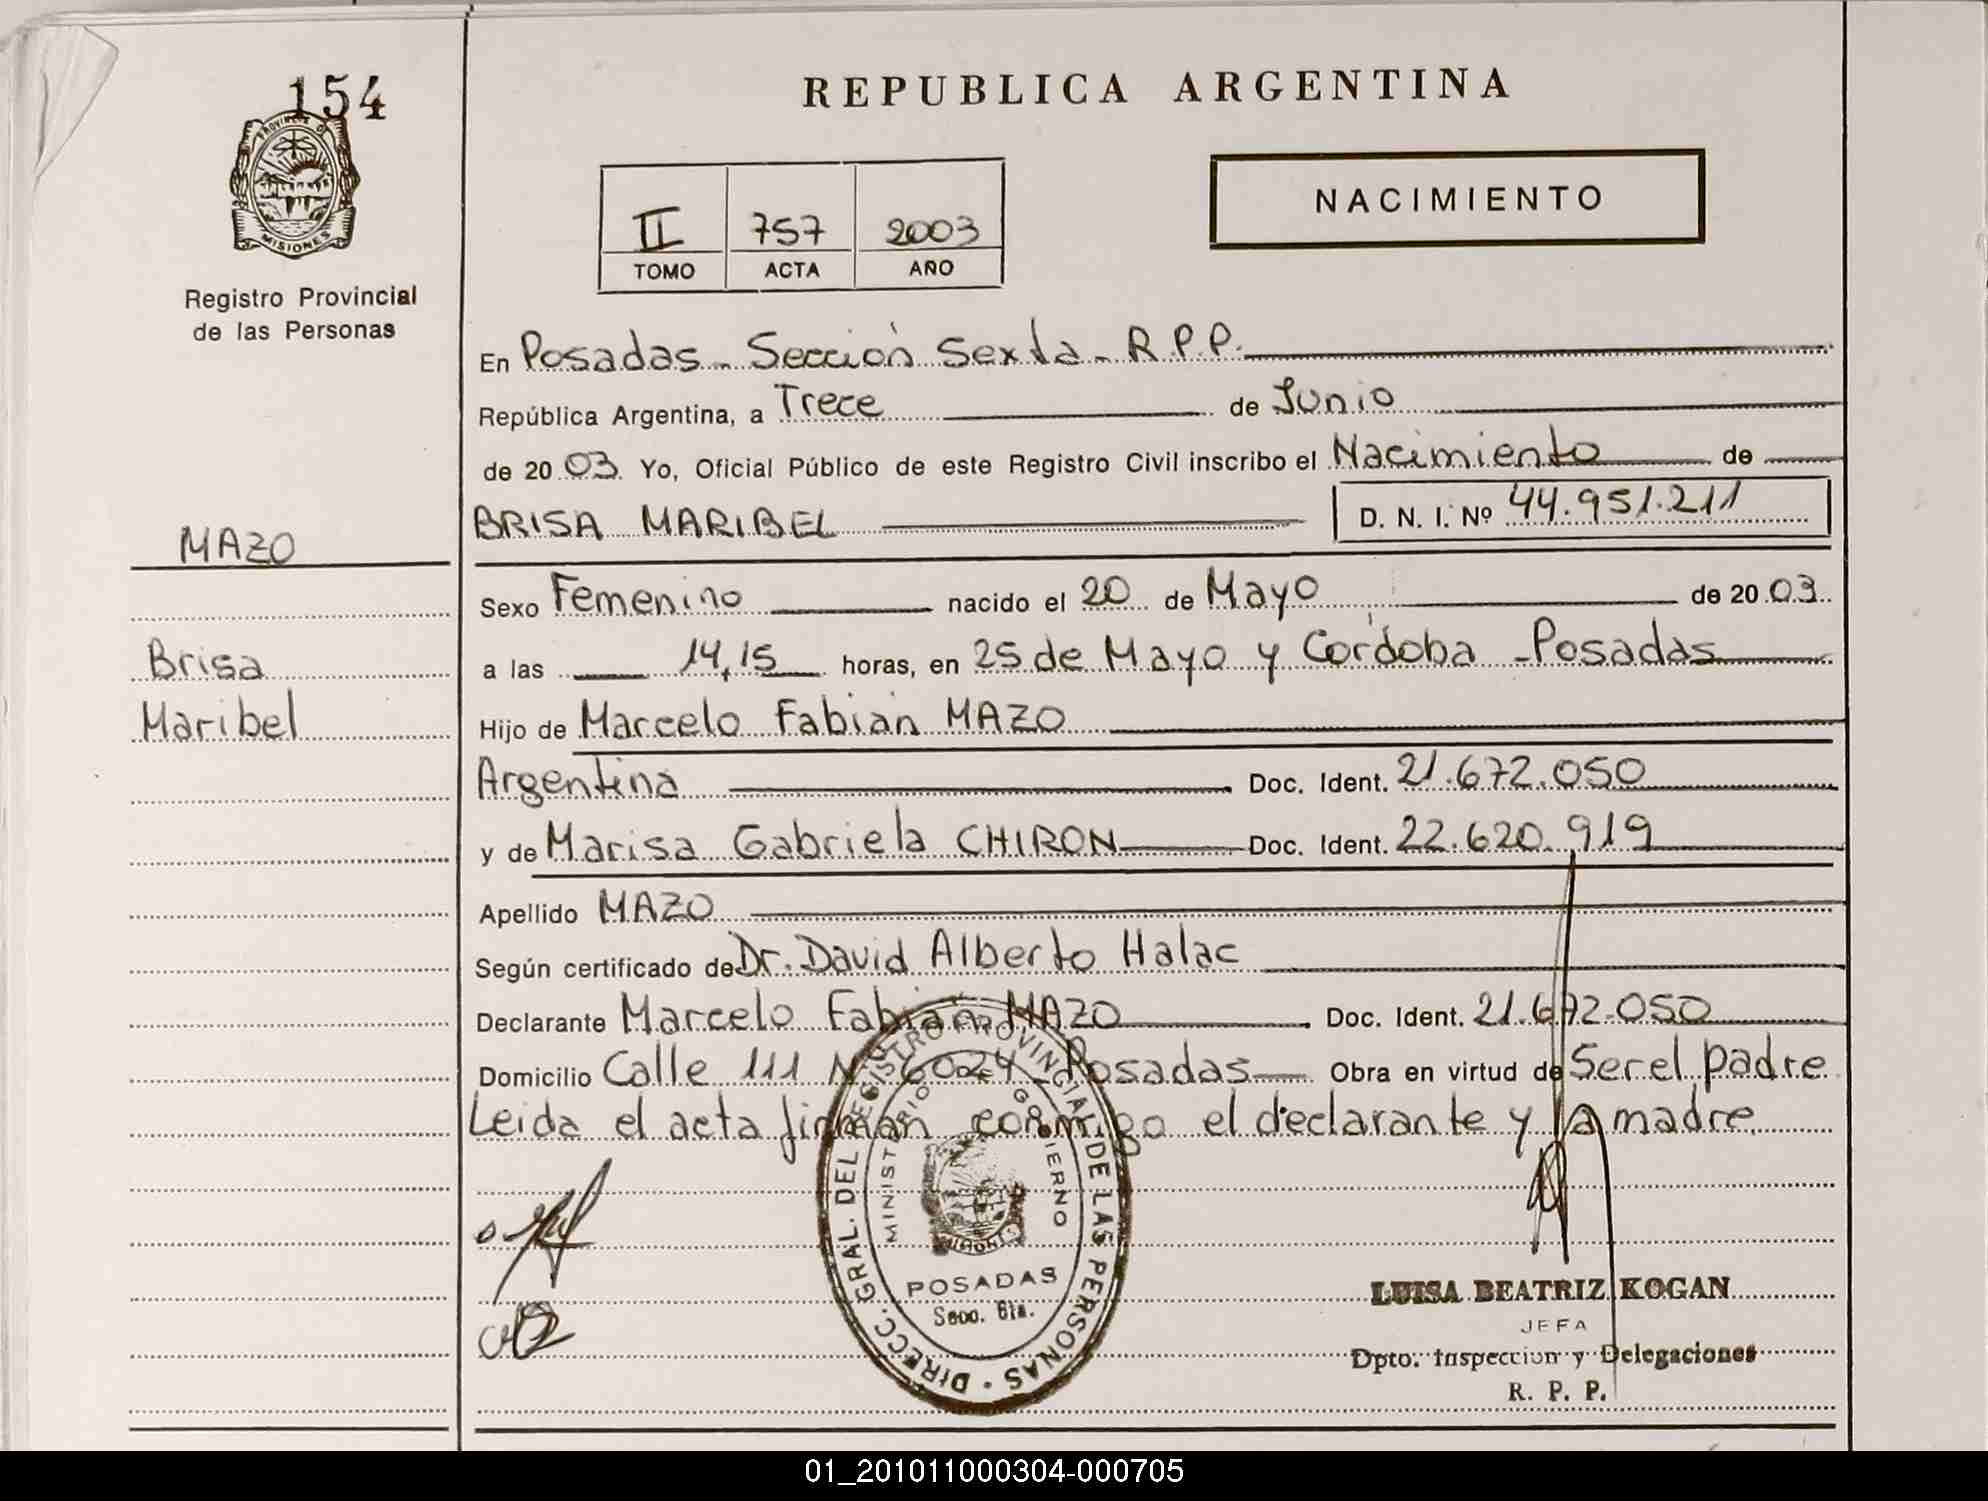 154
PROVINCIA DE
MISIONES
Registro Provincial
de las Personas
REPUBLICA ARGENTINA
II 757 2003
TOMO ACTA AÑO
NACIMIENTO
En Posadas - Sección Sexta - R.P.P.
República Argentina, a Trece de Junio
de 20 03. Yo, Oficial Público de este Registro Civil inscribo el Nacimiento de
BRISA MARIBEL D. N. I. Nº 44.951.211
MAZO
Sexo Femenino nacido el 20 de Mayo de 20 03
Brisa
a las 14,15 horas, en 25 de Mayo y Córdoba - Posadas
Maribel
Hijo de Marcelo Fabian MAZO
Argentina Doc. Ident. 21.672.050
y de Marisa Gabriela CHIRON Doc. Ident. 22.620.919
Apellido MAZO
Según certificado de Dr. David Alberto Halac
Declarante Marcelo Fabian MAZO Doc. Ident. 21.672.050
Domicilio Calle 111 Nº 6024 - Posadas Obra en virtud de Ser el padre
Leida el acta firman conmigo el declarante y la madre
DIRECC. GRAL. DEL REGISTRO PROVINCIAL DE LAS PERSONAS
MINISTERIO GOBIERNO
MISIONES
POSADAS
Secc. 6ta.
LUISA BEATRIZ KOGAN
JEFA
Dpto. Inspeccion y Delegaciones
R. P. P.
01_201011000304-000705